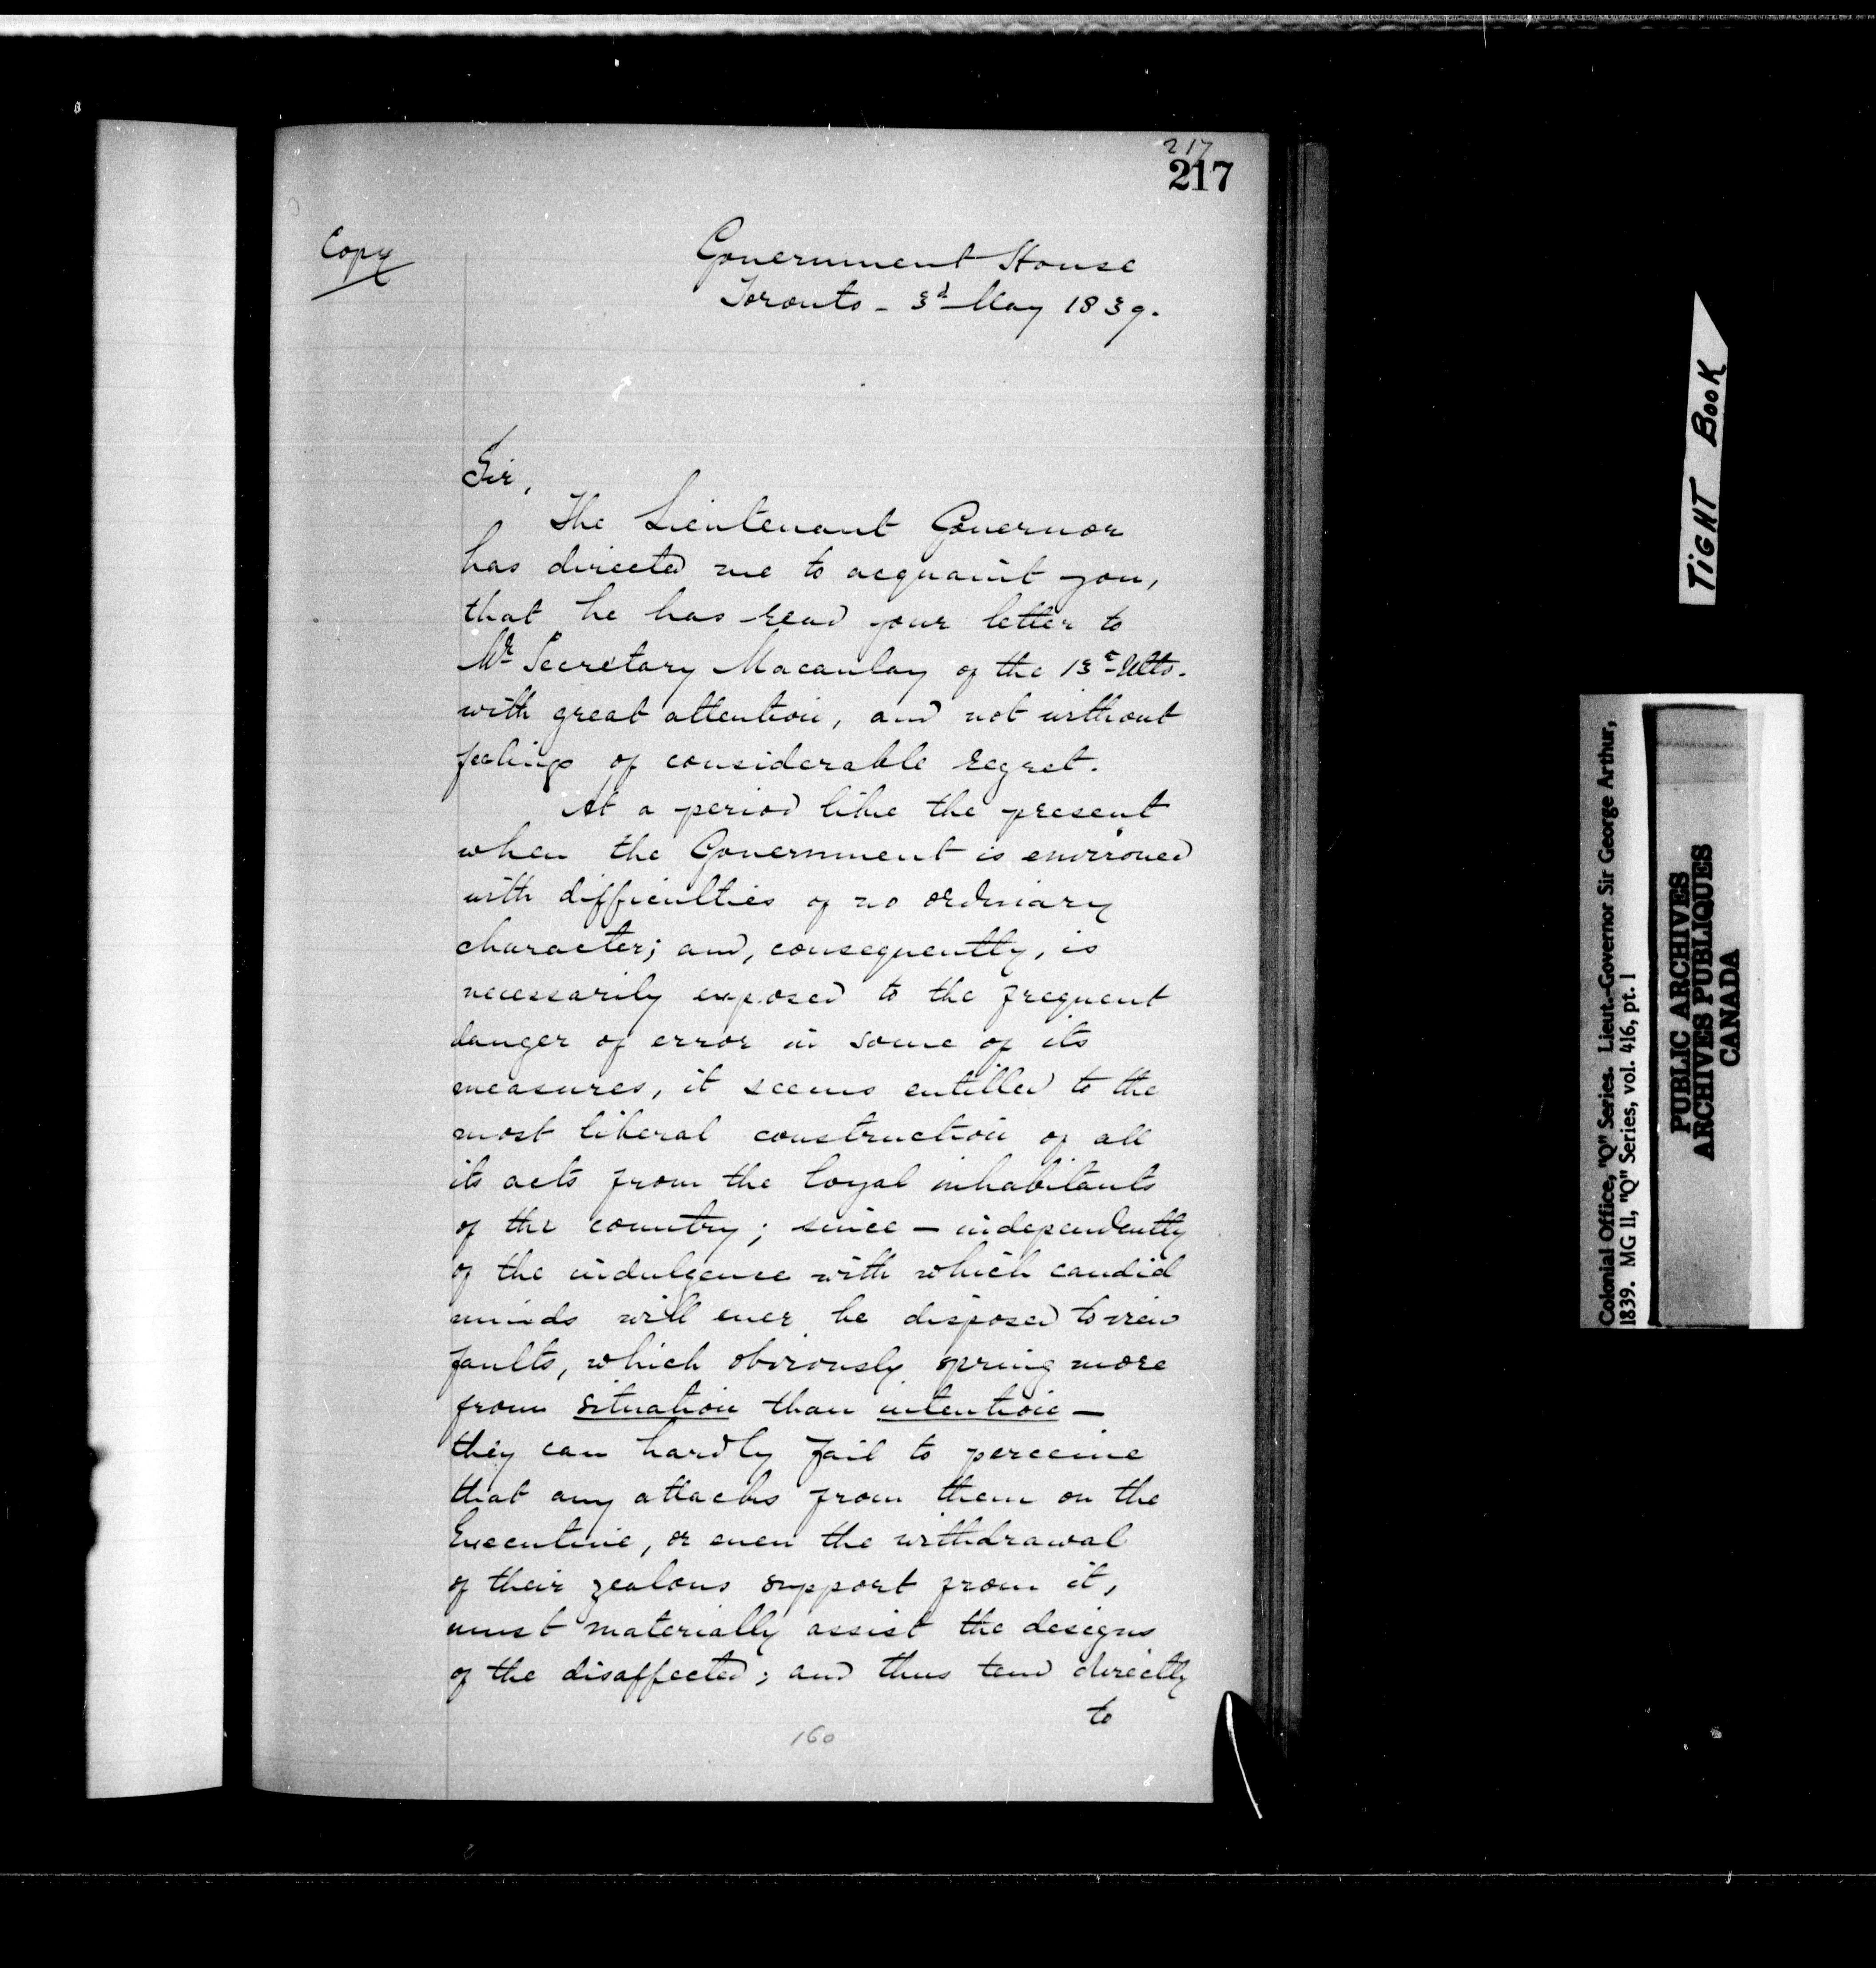 217
217
Copy
Government House
Toronto - 3d May 1839.
Sir,
The Lieutenant Governor
has directed me to acquaint you,
that he has read your letter to
Mr Secretary Macaulay of the 13th Ulto.
with great attention, and not without
feelings of considerable regret.
At a period like the present
when the Government is environed
with difficulties of no ordinary
character; and, consequently, is
necessarily exposed to the frequent
danger of error in some of its
measures, it seems entitled to the
most liberal construction of all
its acts from the loyal inhabitants
of the country; since — independently
of the indulgence with which candid
minds will ever be disposed to view
faults, which obviously spring more
from situation than intention —
they can hardly fail to perceive
that any attacks from them on the
Executive, or even the withdrawal
of their zealous support from it,
must materially assist the designs
of the disaffected; and thus tend directly
to
160
TIGHT BOOK
Colonial Office, "Q" Series. Lieut.-Governor Sir George Arthur,
1839. MG 11, "Q" Series, vol. 416, pt. 1
PUBLIC ARCHIVES
ARCHIVES PUBLIQUES
CANADA